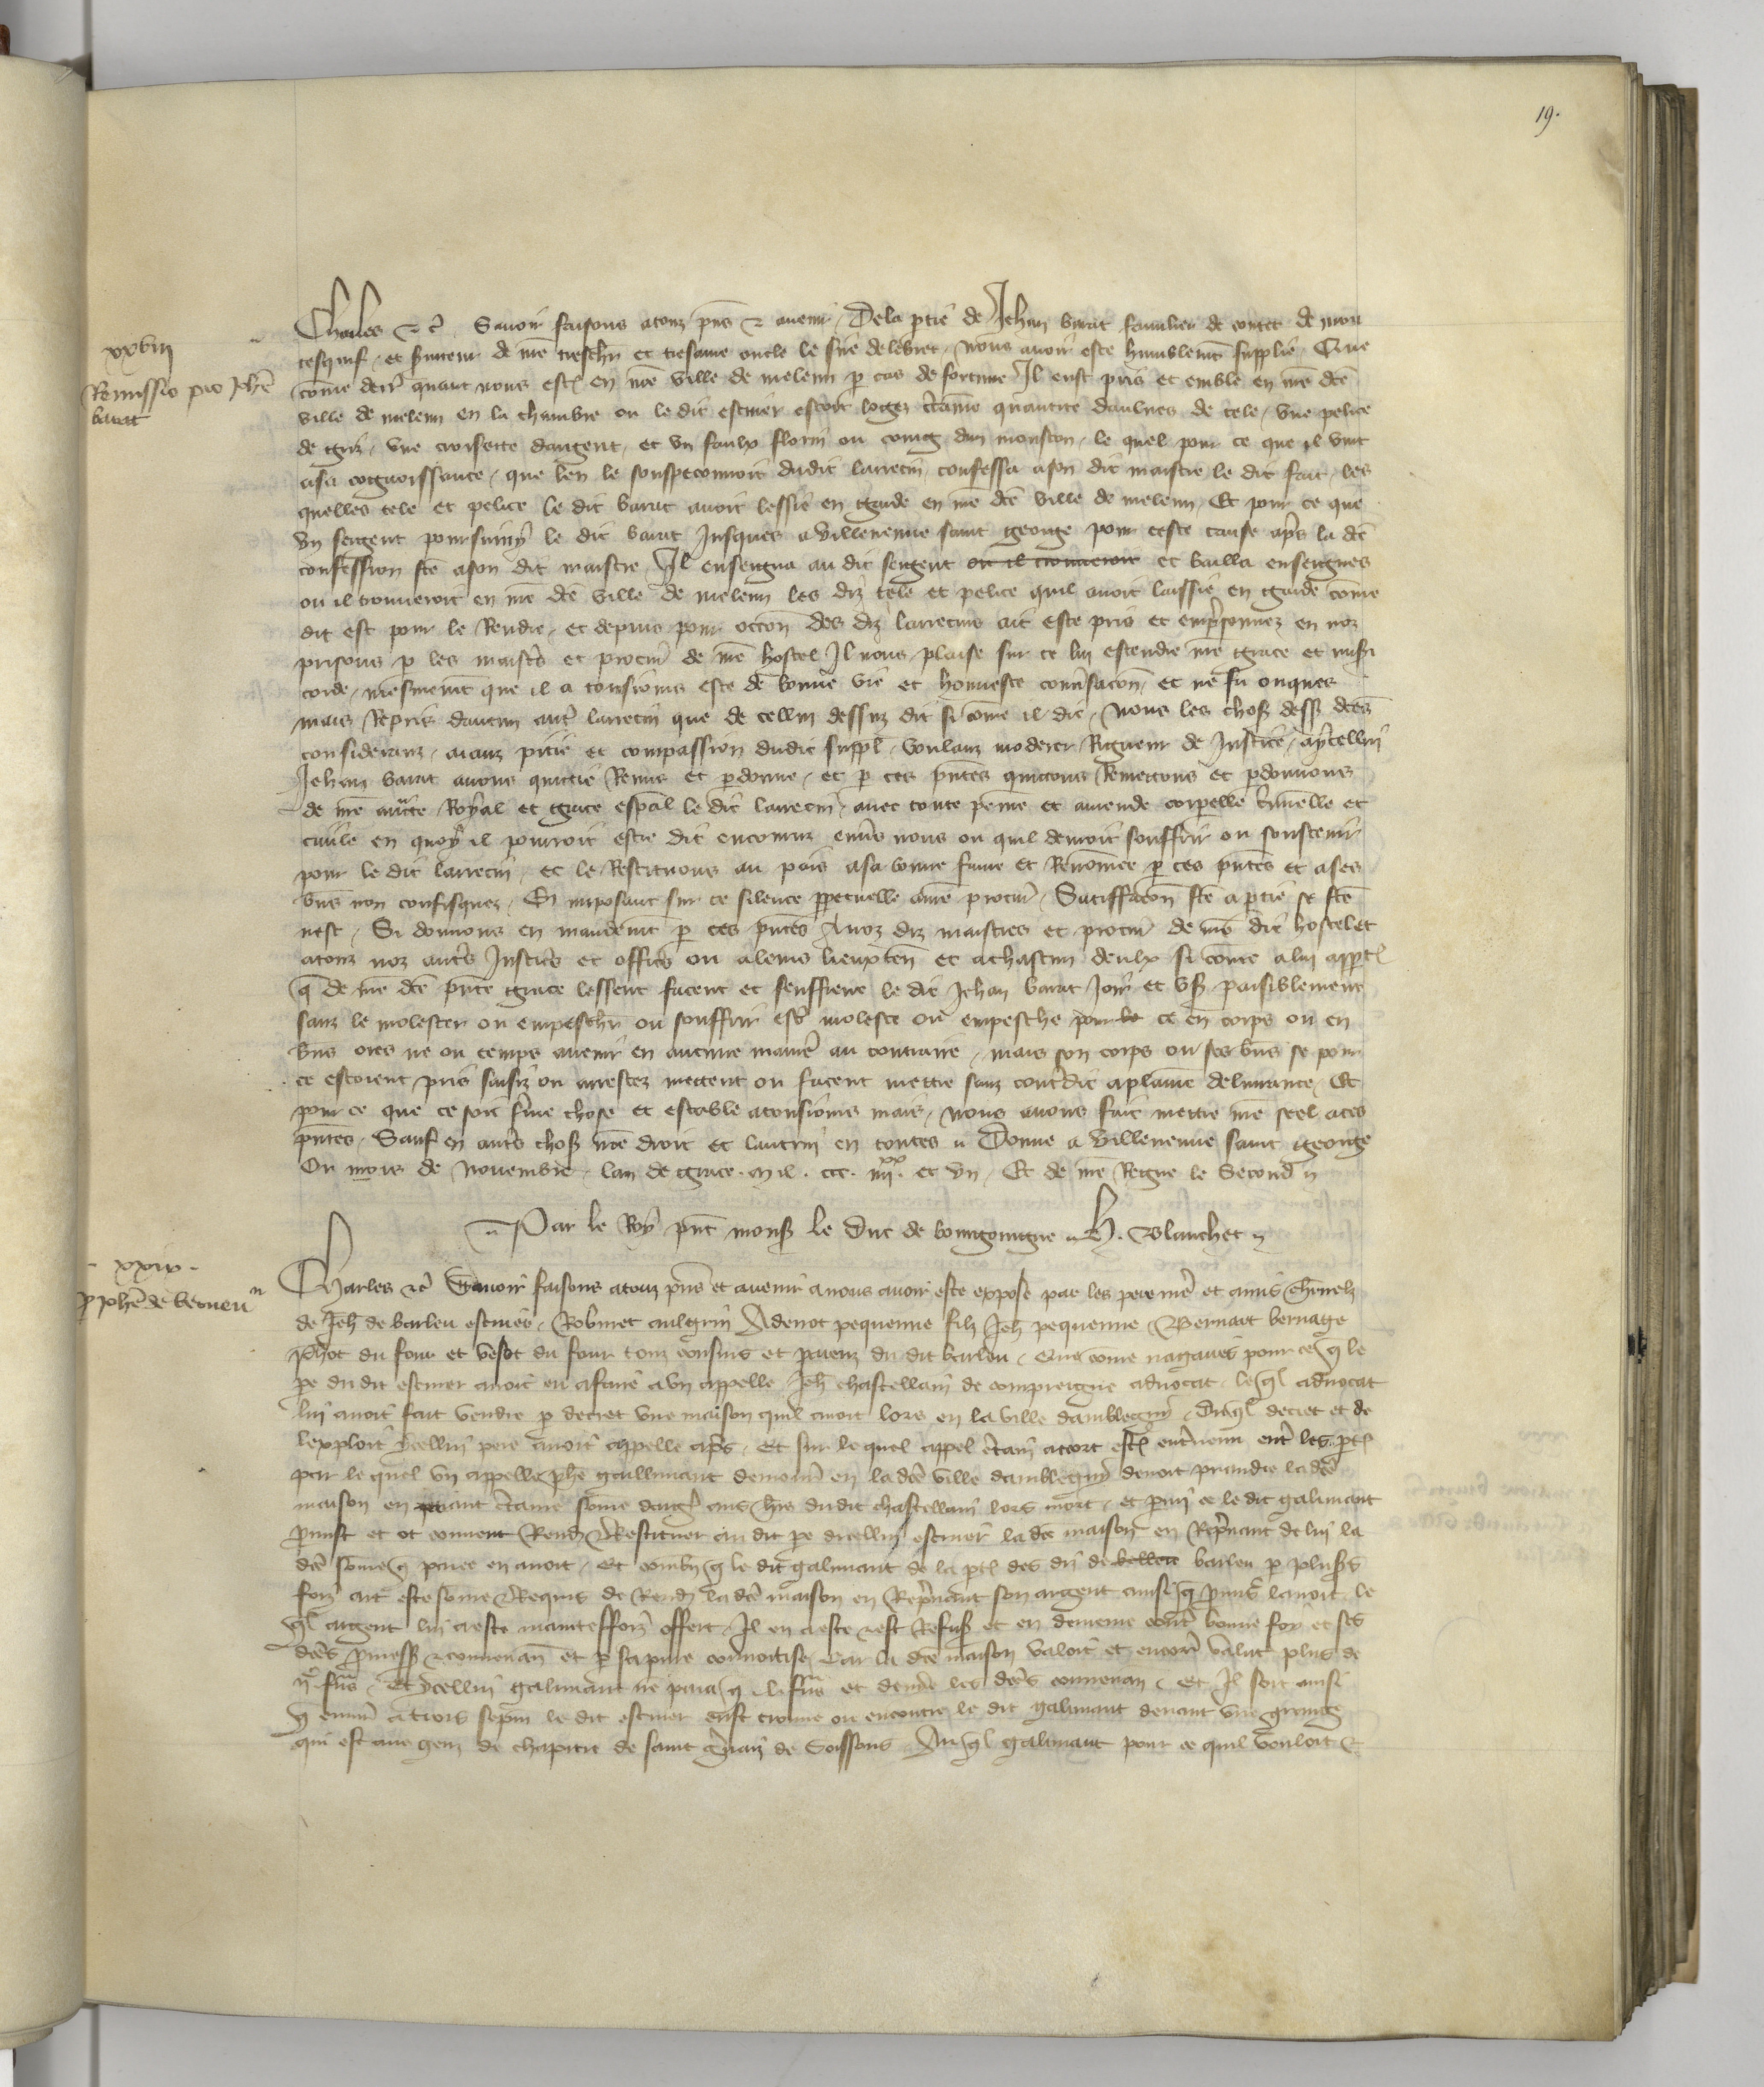 19.
xxviii
Remissio pro Johe
barat
Charles &c. Savoir faisons a touz pns & avenir. De la ptie de Jehan barat familier de contet de mon
tesquif, et serviteur de nre treschr et tresame oncle le sire delebret, nous avoir este humblemt supplie. Que
come derr quant nous esti en nre ville de meleun p cas de fortune Il eust pris et emble en nre dce
ville de meleun en la chambre ou le dit escuier estoit logez ctaine quantite daulnes de tele, une pelice
de gris, une croisette dargent, et un faulx florin ou coing dun mouston, le quel pour ce que il vint
a sa cognoissance, que len le souspeconnoit dudit larrecin, confessa a son dit maistre le dit fait, les
quelles tele et pelice le dit barat avoit lessie en garde en nre dce ville de meleun. Et pour ce que
un sergent poursuivy le dit barat jusques a villeneuve saint george pour ceste cause aps la dce
confession fce a son dit maistre. Il enseigna au dit sergent ou il trouveroit et bailla enseignes
ou il trouveroit en nre dce ville de meleun les diz tele et pelice quil avoit laissie en garde come
dit est pour le rendre, et depuis pour occon des diz larrecins ait este pris et emprisonnez en noz
prisons p les maistres et procur de nre hostel Il nous plaise sur ce lui estendre nre grace et miseri
corde, mesmemt que il a tousiours este de bonne vie et honneste conversacon, et ne fu onques
mais repris daucun autre larrecin que de cellui dessuz dit si come il dit. Nous les choses dess dces
considerans, aians pitie et compassion dudit suppl, voulanz moderer rigueur de justice, a ycellui
Jehan barat avons quittie remis et pdonne, et p ces pntes quittons remettons et pdonnons
de nre aucte royal et grace espal le dit larrecin, avec toute peine et amende corporelle criminelle et
civile en quoy il pourroit estre dit encouruz envs nous ou quil devroit souffrir ou soustenir
pour le dit larrecin, et le restituons au pais a sa bonne fame et renomee p ces pntes et a ses
bns non confisquez. En imposant sur ce silence ppetuelle a nre procur. Satiffacon fce a ptie se fce
nest. Si donnons en mandemt p ces pntes a noz diz maistres et procur de nre dit hostel et
a touz noz auts justics et offics ou a leurs lieuxten et a chascun deulx si come a lui apptl
q de nre dce pnte grace lessent facent et seuffrent le dit Jehan barat joir et user paisiblement
sanz le molester ou empeschr ou souffrir estre moleste ou empesche pour le ce en corps ou en
bns ores ne ou temps avenir en aucune maniere au contraire, mais son corps ou ses bns se pour
ce estoient pris saisiz ou arrestez mettent ou facent mettre sanz contredit a plaine delivrance. Et
pour ce que ce soit ferme chose et estable a tousiours mais, nous avons fait mettre nre seel a ces
pntes. Sauf en auts choses nre droit et lautrui en toutes. Donne a Villeneuve saint george
Ou mois de novembre. lan de grace. mil. ccc. iiiixx. et un. Et de nre regne le second
Par le Roy pnt monss le duc de bourgoingne. H. Blanchet
xxix.
p Johe de berneu
Charles &c Savoir faisons a touz pns et avenir a nous avoir este expose par les pere mere et amis charnelz
de Jeh de barleu escuier, Robinet aulgrin Adenot pequenne filz Jeh pequenne, Bernart bernage
du four et du four touz cousins et parenz du dit barleu, Que come nagaires pour ce q le
pe du dit escuier avoit eu afaire a un appelle Jeh chastellain de compiegne advocat, le ql advocat
lui avoit fait vendre p decret une maison quil avoit lors en la ville dambleigny, duql decret et de
lexploit ycellui pere avoit appelle aps, Et sur le quel appel ctain acort entrevenu entre les pties
par le quel un appelle galimant demour en la dce ville dambleigny devoit prendre la dce
maison en paiant ctaine some dargt aus hrs du dit chastellain lors mort, et pmi ce le dit galimant
pmist et ot convent rendre & restituer au dit pe dicellui escuier la dce maison en reprenant de lui la
dce some q paiee en avoit, Et combn q le dit galimant de la ptie des dit de barleu p pluss
foiz ait este some & requis de rendre la dce maison en reprenant son argent ainsi q pmis lavoit, le
ql argent lui a este maintesfoiz offert, Il en a este & est refusant et en demeure contre bonne foy et ses
dces pmesses & convenan et p sa pure convoitise, Car la dce maison valoit et encore vault plus de
frans, Et ycellui galimant ne paia q frans et les dces convenan, Et Il soit ainsi
q environ a trois sepm le dit escuier eust trouve ou encontre le dit galimant devant une grange
qui est aus genz de chapitre de saint de Soissons, Auql galimant pour ce quil vouloit &